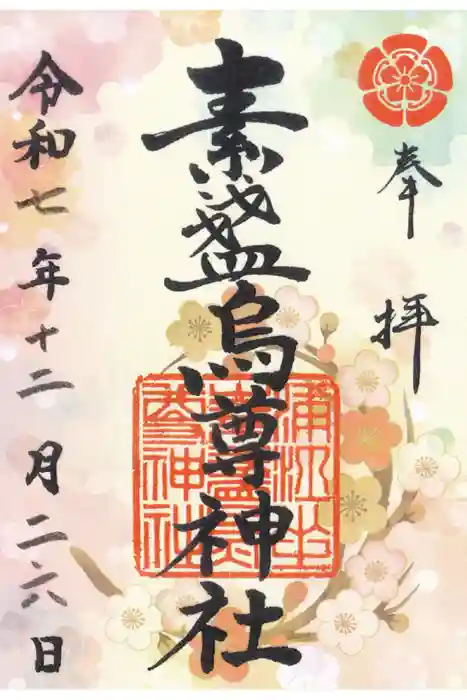 奉拝
素盞烏尊神社
浦江
素盞烏
尊神社
令和七年十二月二六日